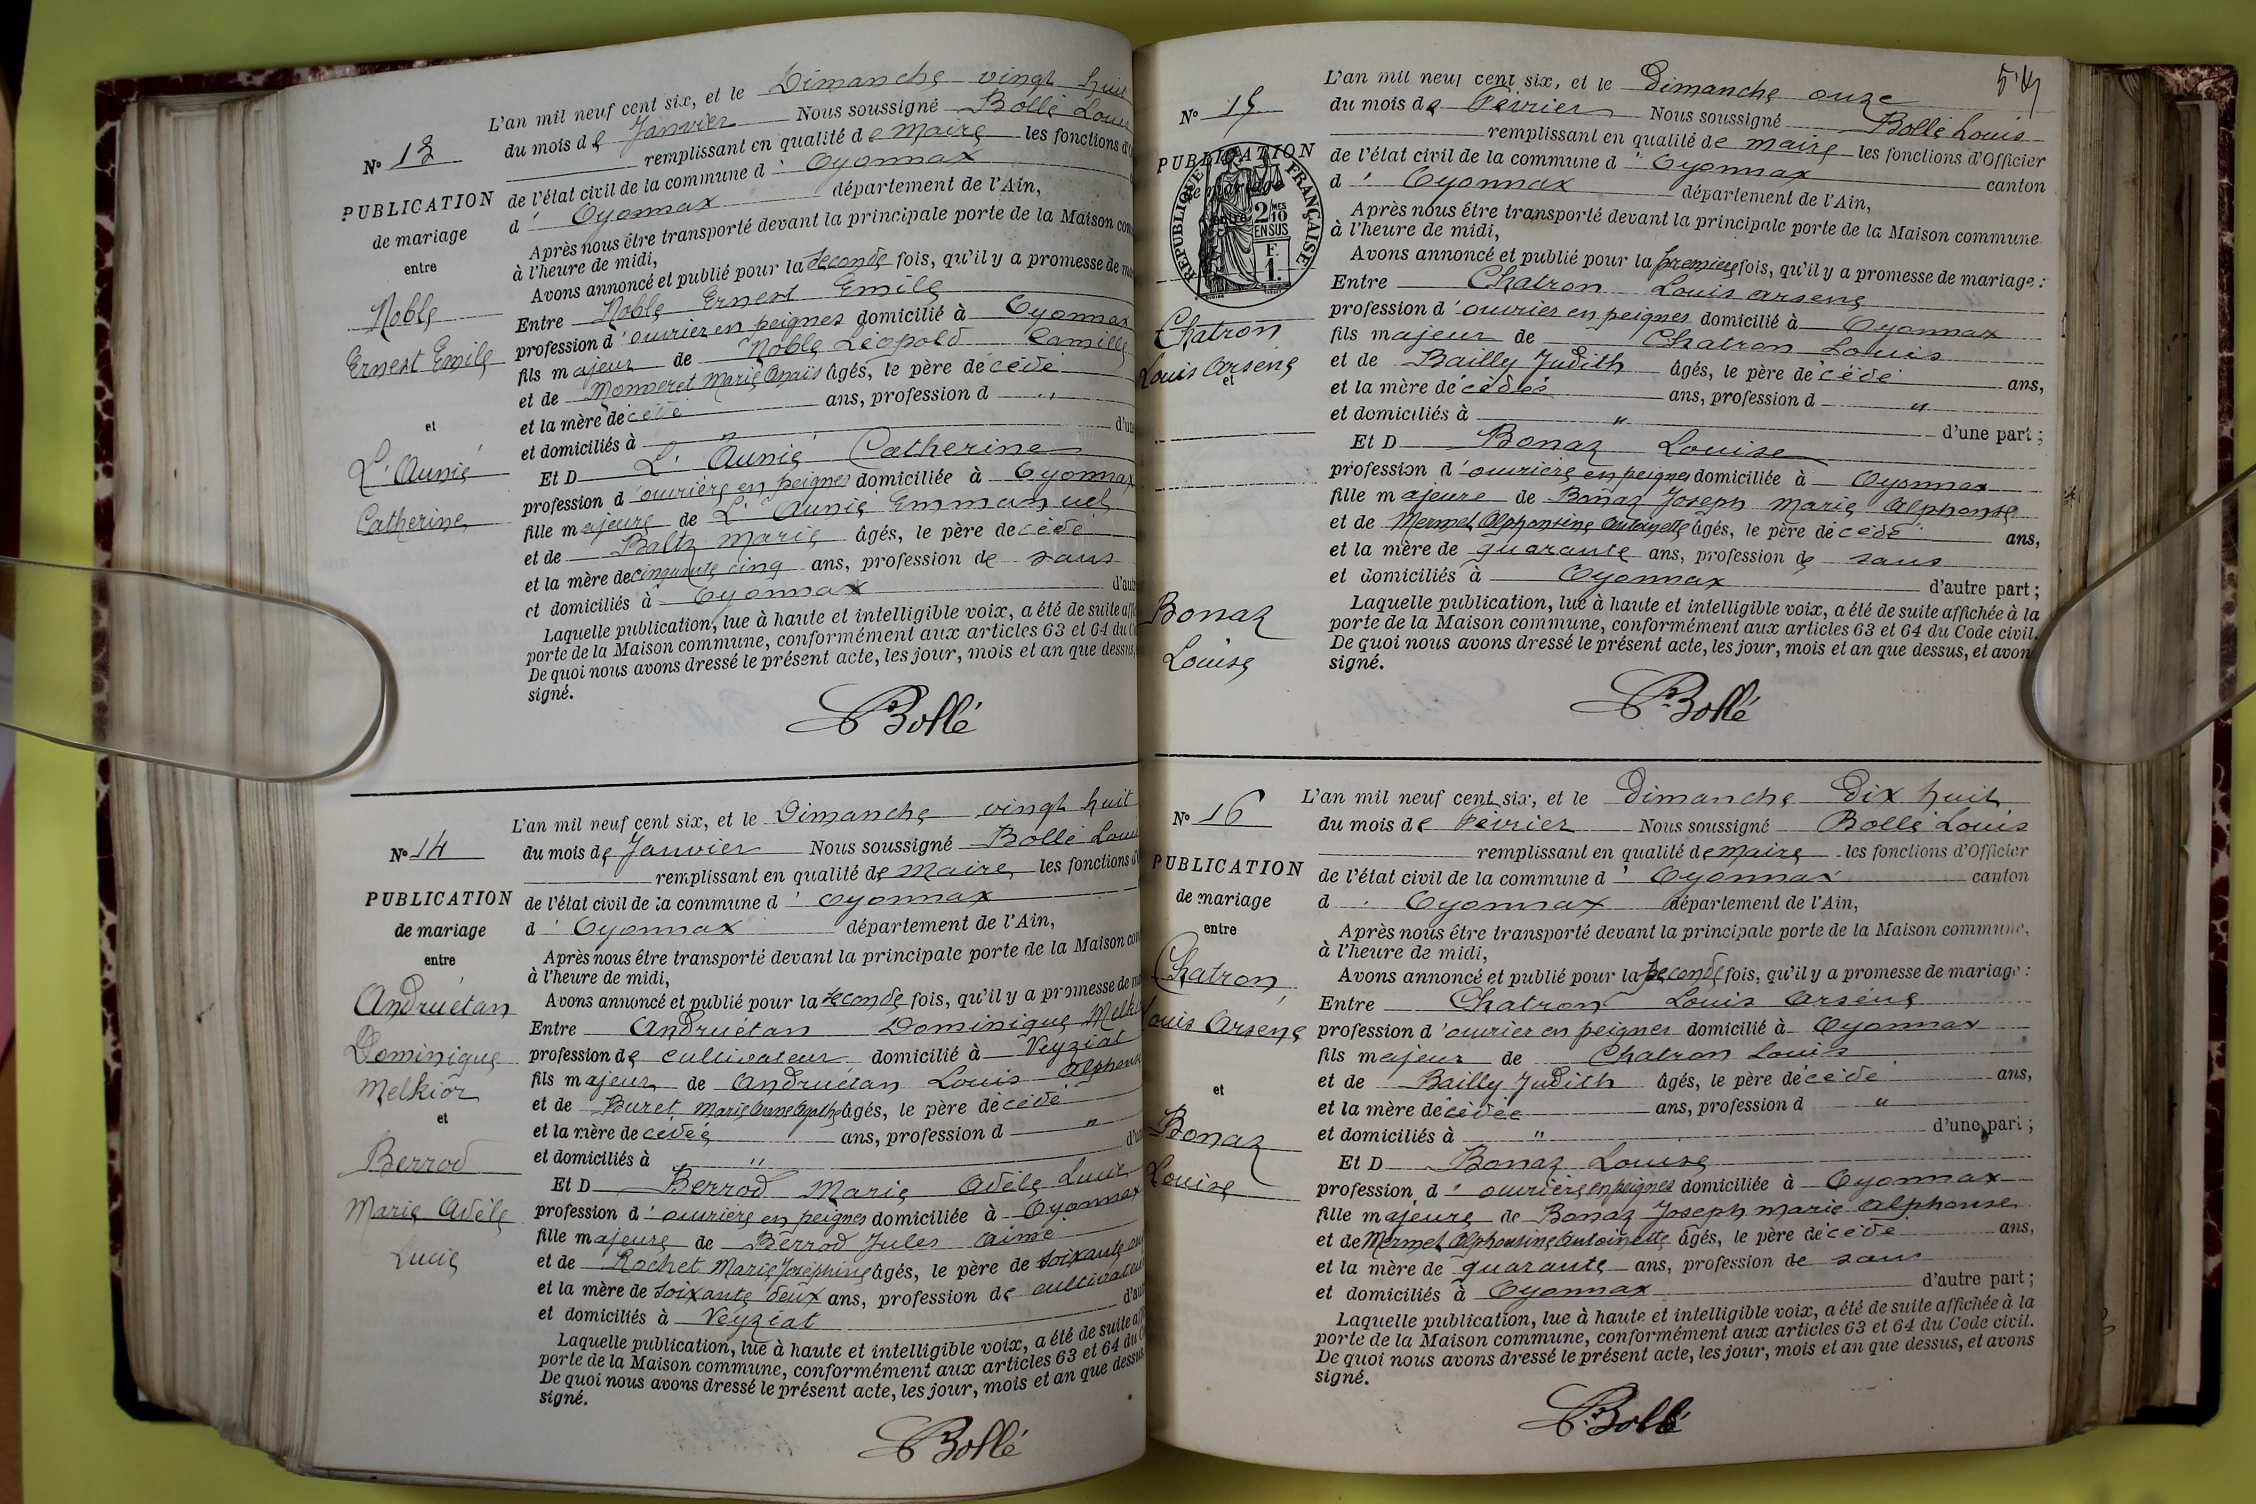 N° 13
PUBLICATION
de mariage
entre
Noble
Ernest Emile
et
L'Aunié
Catherine
L'an mil neuf cent six, et le Dimanche vingt huit
du mois de Janvier Nous soussigné Bollé Louis
remplissant en qualité de Maire les fonctions d'
de l'état civil de la commune d'Oyonnax
d'Oyonnax département de l'Ain,
Après nous être transporté devant la principale porte de la Maison com
à l'heure de midi,
Avons annoncé et publié pour la seconde fois, qu'il y a promesse de ma
Entre Noble Ernest Emile
profession d'ouvrier en peignes domicilié à Oyonnax
fils majeur de Noble Léopold Camille
et de Monneret Marie Anais âgés, le père décédé
et la mère décédé ans, profession d "
et domiciliés à " d'une
Et D L'Aunié Catherine
profession d'ouvrière en peignes domiciliée à Oyonnax
fille majeure de L'Aunié Emmanuel
et de Baltz Marie âgés, le père décédé
et la mère de cinquante cinq ans, profession de sans
et domiciliés à Oyonnax d'aut
Laquelle publication, lue à haute et intelligible voix, a été de suite affi
porte de la Maison commune, conformément aux articles 63 et 64 du C
De quoi nous avons dressé le présent acte, les jour, mois et an que dessus,
signé.
Bollé
N° 14
PUBLICATION
de mariage
entre
Andruétan
Dominique
Melkior
et
Berrod
Marie Adèle
Lucie
L'an mil neuf cent six, et le Dimanche vingt huit
du mois de Janvier Nous soussigné Bollé Louis
remplissant en qualité de Maire les fonctions d'
de l'état civil de la commune d'Oyonnax
d'Oyonnax département de l'Ain,
Après nous être transporté devant la principale porte de la Maison com
à l'heure de midi,
Avons annoncé et publié pour la seconde fois, qu'il y a promesse de ma
Entre Andruétan Dominique Melki
profession de cultivateur domicilié à Veyziat
fils majeur de Andruétan Louis Alphonse
et de Buret Marie Anne Agathe âgés, le père décédé
et la mère décédée ans, profession d "
et domiciliés à " d'u
Et D Berrod Marie Adèle Lucie
profession d'ouvrière en peignes domiciliée à Oyonnax
fille majeure de Berrod Jules Aimé
et de Rochet Marie Joséphine âgés, le père de soixante
et la mère de soixante deux ans, profession de cultivateur
et domiciliés à Veyziat d'aut
Laquelle publication, lue à haute et intelligible voix, a été de suite aff
porte de la Maison commune, conformément aux articles 63 et 64 du C
De quoi nous avons dressé le présent acte, les jour, mois et an que dessus
signé.
Bollé
N° 15
PUBLICATION
de mariage
entre
RÉPUBLIQUE FRANÇAISE
2/10MES
EN SUS
F.
1.
Chatron
Louis Arsène
et
Bonaz
Louise
L'an mil neuf cent six, et le Dimanche onze
du mois de Février Nous soussigné Bollé Louis
remplissant en qualité de maire les fonctions d'Officier
de l'état civil de la commune d'Oyonnax canton
d'Oyonnax département de l'Ain,
Après nous être transporté devant la principale porte de la Maison commune
à l'heure de midi,
Avons annoncé et publié pour la première fois, qu'il y a promesse de mariage :
Entre Chatron Louis Arsène
profession d'ouvrier en peignes domicilié à Oyonnax
fils majeur de Chatron Louis
et de Bailly Judith âgés, le père décédé ans,
et la mère décédés ans, profession d "
et domiciliés à " d'une part ;
Et D Bonaz Louise
profession d'ouvrière en peignes domiciliée à Oyonnax
fille majeure de Bonaz Joseph Marie Alphonse
et de Mermet Alphonsine Antoinette âgés, le père décédé ans,
et la mère de quarante ans, profession de sans
et domiciliés à Oyonnax d'autre part ;
Laquelle publication, lue à haute et intelligible voix, a été de suite affichée à la
porte de la Maison commune, conformément aux articles 63 et 64 du Code civil.
De quoi nous avons dressé le présent acte, les jour, mois et an que dessus, et avons
signé.
Bollé
N° 16
PUBLICATION
de mariage
entre
Chatron
Louis Arsène
et
Bonaz
Louise
L'an mil neuf cent six, et le Dimanche Dix huit
du mois de Février Nous soussigné Bollé Louis
remplissant en qualité de maire les fonctions d'Officier
de l'état civil de la commune d'Oyonnax canton
d'Oyonnax département de l'Ain,
Après nous être transporté devant la principale porte de la Maison commune,
à l'heure de midi,
Avons annoncé et publié pour la seconde fois, qu'il y a promesse de mariage :
Entre Chatron Louis Arsène
profession d'ouvrier en peignes domicilié à Oyonnax
fils majeur de Chatron Louis
et de Bailly Judith âgés, le père décédé ans,
et la mère décédée ans, profession d "
et domiciliés à " d'une part ;
Et D Bonaz Louise
profession d'ouvrière en peignes domiciliée à Oyonnax
fille majeure de Bonaz Joseph Marie Alphonse
et de Mermet Alphonsine Antoinette âgés, le père décédé ans,
et la mère de quarante ans, profession de sans
et domiciliés à Oyonnax d'autre part ;
Laquelle publication, lue à haute et intelligible voix, a été de suite affichée à la
porte de la Maison commune, conformément aux articles 63 et 64 du Code civil.
De quoi nous avons dressé le présent acte, les jour, mois et an que dessus, et avons
signé.
Bollé